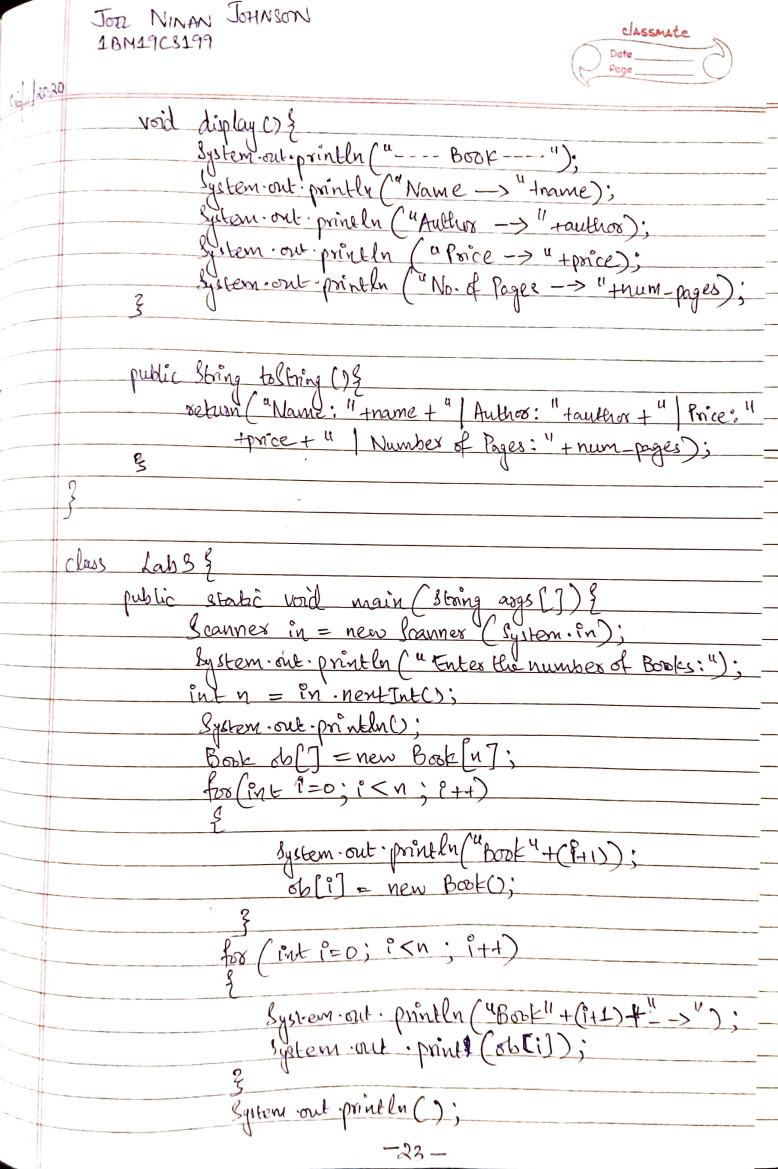 JOEL NINAN JOHNSON
1BM19CS199
classmate
Date
Page
void display() {
System.out.println("---- Book ----");
System.out.println("Name --> "+name);
System.out.println("Author --> "+author);
System.out.println("Price --> "+price);
System.out.println("No. of Pages --> "+num_pages);
}
public String toString() {
return("Name: "+name+" | Author: "+author+" | Price: "
+price+" | Number of Pages: "+num_pages);
}
}
class Lab3 {
public static void main(String args[]) {
Scanner in = new Scanner(System.in);
System.out.println("Enter the number of Books:");
int n = in.nextInt();
System.out.println();
Book ob[] = new Book[n];
for(int i=0; i<n; i++)
{
System.out.println("Book"+(i+1));
ob[i] = new Book();
}
for(int i=0; i<n; i++)
{
System.out.println("Book"+(i+1)+"-->");
System.out.print(ob[i]);
}
System.out.println();
-23-